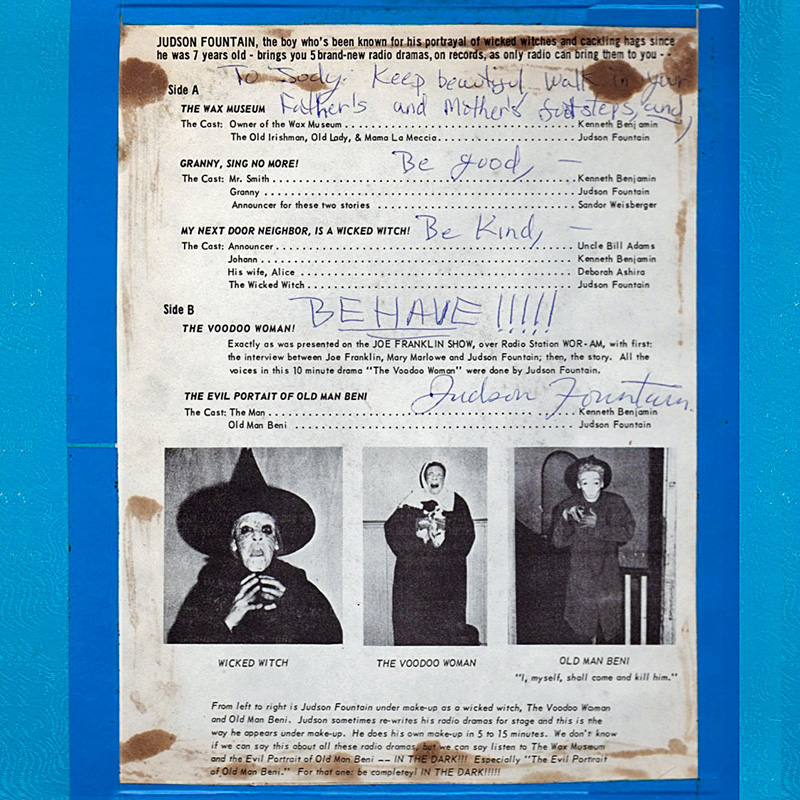 JUDSON FOUNTAIN, the boy who's been known for his portrayal of wicked witches and cackling hags since
he was 7 years old - brings you 5 brand-new radio dramas, on records, as only radio can bring them to you - -
To Jody: Keep beautiful walk in your
Side A
Father's and Mother's footsteps, and,
THE WAX MUSEUM
The Cast: Owner of the Wax Museum . . . . . . . . . . Kenneth Benjamin
The Old Irishman, Old Lady, & Mama La Meccia . . . . . . . . . . Judson Fountain
Be good, —
GRANNY, SING NO MORE!
The Cast: Mr. Smith . . . . . . . . . . Kenneth Benjamin
Granny . . . . . . . . . . Judson Fountain
Announcer for these two stories . . . . . . . . . . Sandor Weisberger
MY NEXT DOOR NEIGHBOR, IS A WICKED WITCH!
Be Kind, —
The Cast: Announcer . . . . . . . . . . Uncle Bill Adams
Johann . . . . . . . . . . Kenneth Benjamin
His wife, Alice . . . . . . . . . . Deborah Ashira
The Wicked Witch . . . . . . . . . . Judson Fountain
Side B
BEHAVE !!!!!
THE VOODOO WOMAN!
Exactly as was presented on the JOE FRANKLIN SHOW, over Radio Station WOR-AM, with first:
the interview between Joe Franklin, Mary Marlowe and Judson Fountain; then, the story. All the
voices in this 10 minute drama "The Voodoo Woman" were done by Judson Fountain.
THE EVIL PORTAIT OF OLD MAN BENI
Judson Fountain.
The Cast: The Man . . . . . . . . . . Kenneth Benjamin
Old Man Beni . . . . . . . . . . Judson Fountain
WICKED WITCH
THE VOODOO WOMAN
OLD MAN BENI
"I, myself, shall come and kill him."
From left to right is Judson Fountain under make-up as a wicked witch, The Voodoo Woman
and Old Man Beni. Judson sometimes re-writes his radio dramas for stage and this is the
way he appears under make-up. He does his own make-up in 5 to 15 minutes. We don't know
if we can say this about all these radio dramas, but we can say listen to The Wax Museum
and the Evil Portrait of Old Man Beni -- IN THE DARK!!! Especially "The Evil Portrait
of Old Man Beni." For that one: be completeyl IN THE DARK!!!!!